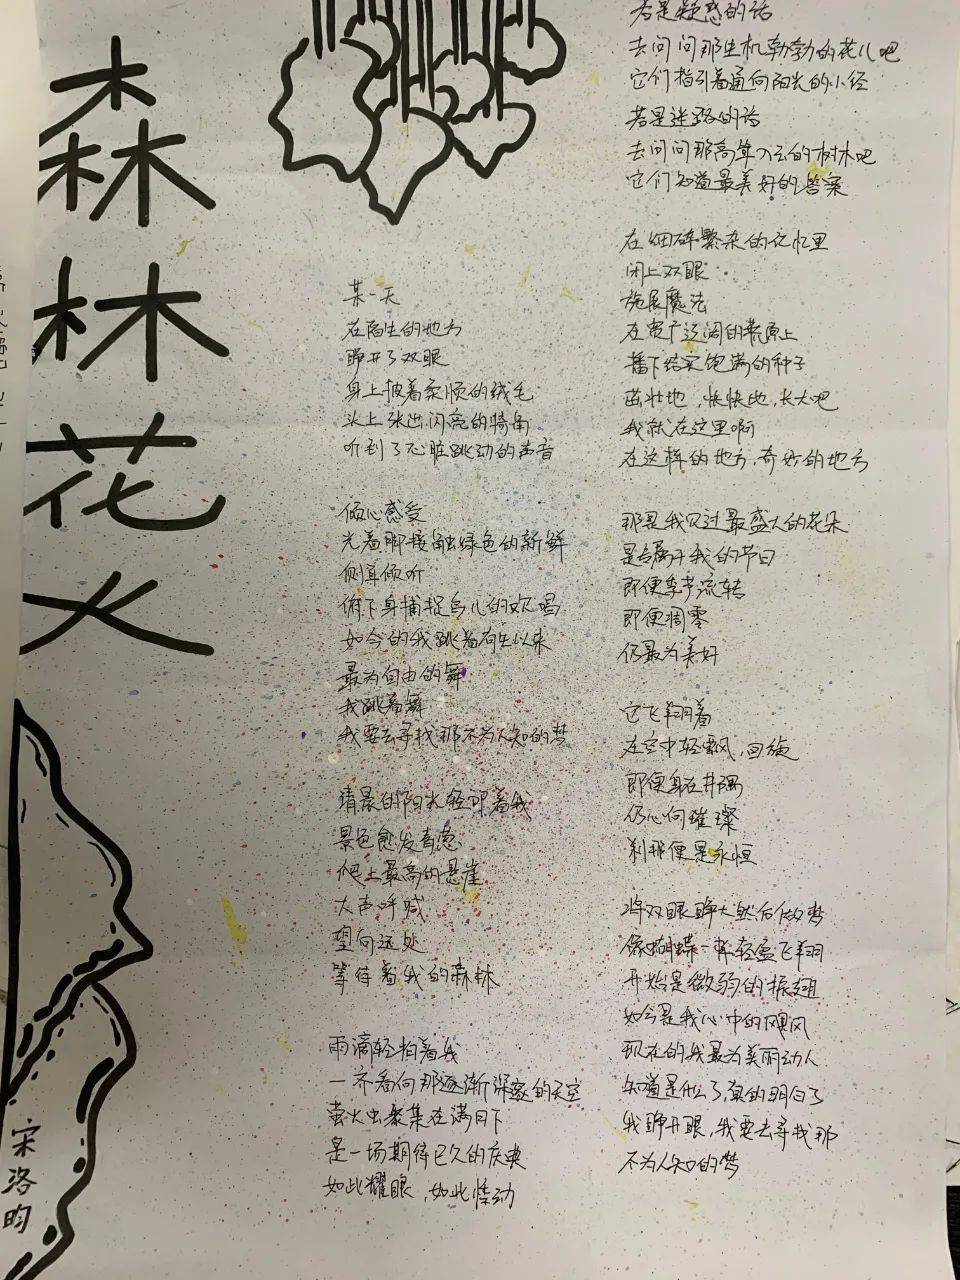 森林花火
宋洛昀
某一天
在陌生的地方
睁开了双眼
身上披着柔顺的绒毛
头上张出闪亮的犄角
听到了心脏跳动的声音
倾心感受
光着脚接触绿色的新鲜
侧耳倾听
俯下身捕捉鸟儿的欢唱
如今的我跳着有生以来
最为自由的舞
我跳着舞
我要去寻找那不为人知的梦
清晨的阳光轻叩着我
景色愈发青葱
爬上最高的悬崖
大声呼喊
望向远处
等待着我的森林
雨滴轻拍着我
一齐看向那逐渐深邃的天空
萤火虫聚集在满月下
是一场期待已久的庆典
如此耀眼,如此悸动
若是疑惑的话
去问问那生机勃勃的花儿吧
它们指引着通向阳光的小径
若是迷路的话
去问问那高耸入云的树林吧
它们知道最美好的答案
在细碎繁杂的记忆里
闭上双眼
施展魔法
在宽广辽阔的草原上
播下结实饱满的种子
茁壮地,快快地,长大吧
我就在这里啊
在这样的地方,奇妙的地方
那是我见过最盛大的花朵
是专属于我的节日
即便季节流转
即便凋零
仍最为美好
它飞翔着
在空中轻飘,回旋
即便身在井隅
仍心向璀璨
刹那便是永恒
将双眼睁大然后做梦
像蝴蝶一样轻盈飞翔
开始是微弱的振翅
如今是我心中的飓风
现在的我最为美丽动人
知道是什么了,真的明白了
我睁开眼,我要去寻找那
不为人知的梦